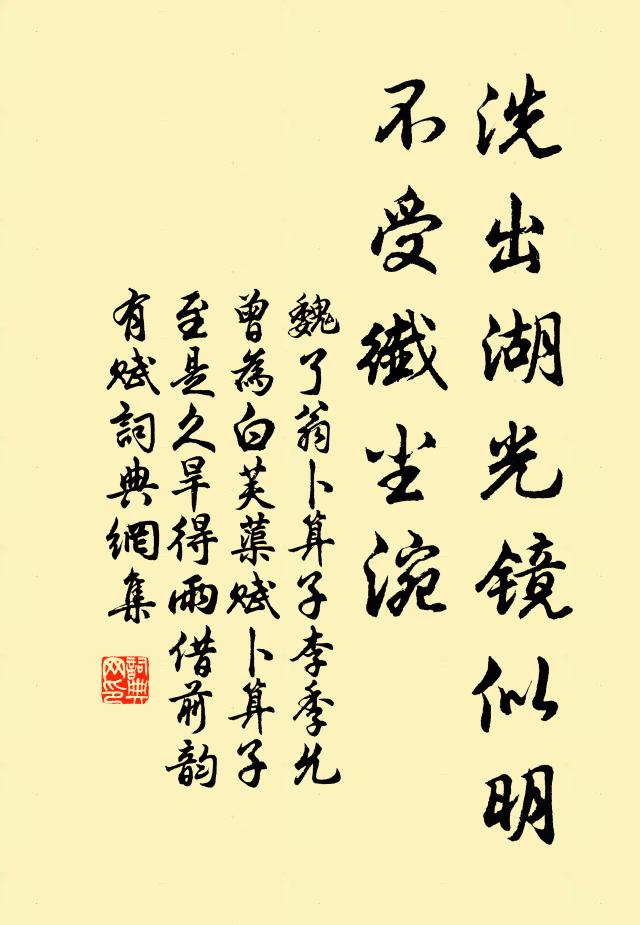 洗出湖光镜似明
不受纖尘涴
魏了翁卜算子李季允
曾為白芙蕖赋卜算子
至是久旱得雨借前韵
有赋詞典網集
詞典网印